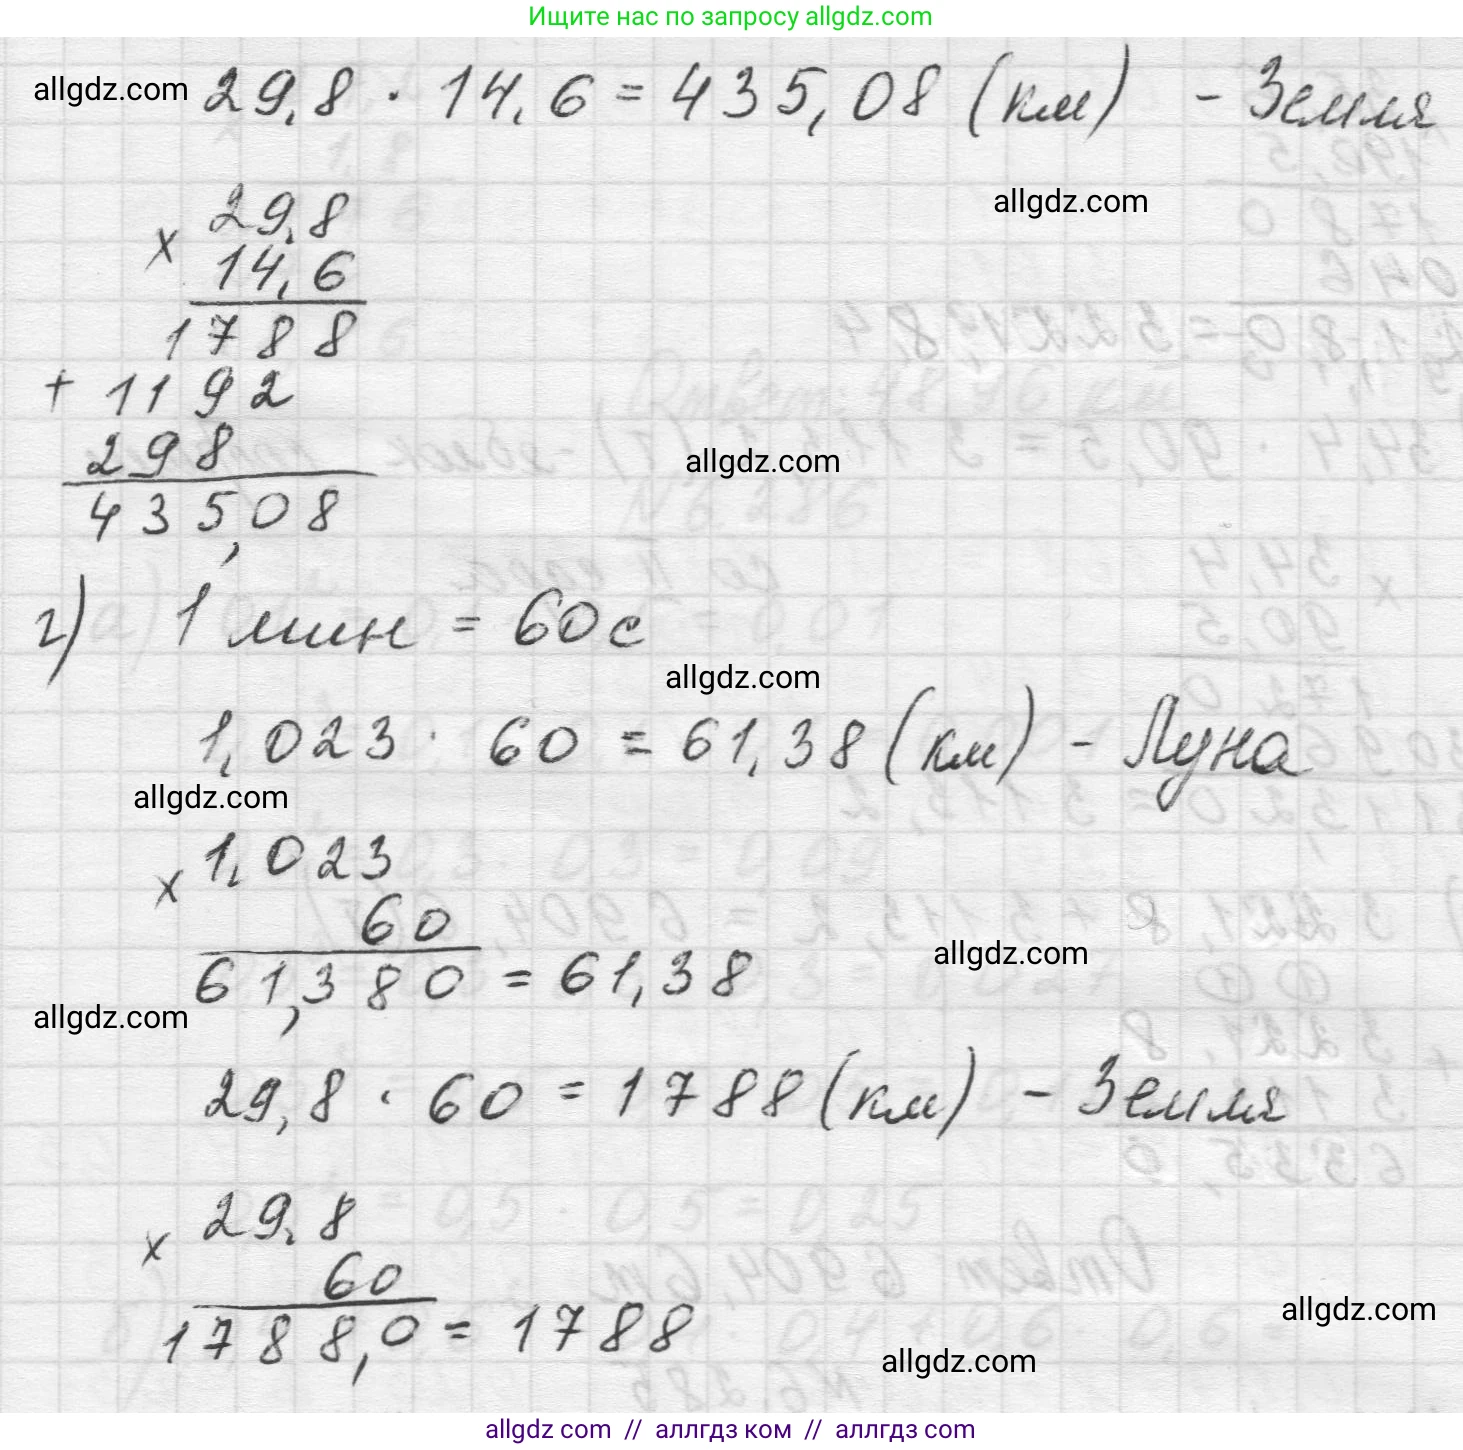 Ищите нас по запросу allgdz.com
allgdz.com 29,8 · 14,6 = 435,08 (км) - Земля
allgdz.com
× 29,8
14,6
1788
+ 1192
298
allgdz.com
435,08
г) 1 мин = 60 с
allgdz.com
1,023 · 60 = 61,38 (км) - Луна
allgdz.com
× 1,023
60
allgdz.com
61,380 = 61,38
allgdz.com
29,8 · 60 = 1788 (км) - Земля
× 29,8
60
allgdz.com
1788,0 = 1788
allgdz.com
allgdz.com // аллгдз ком // аллгдз.com